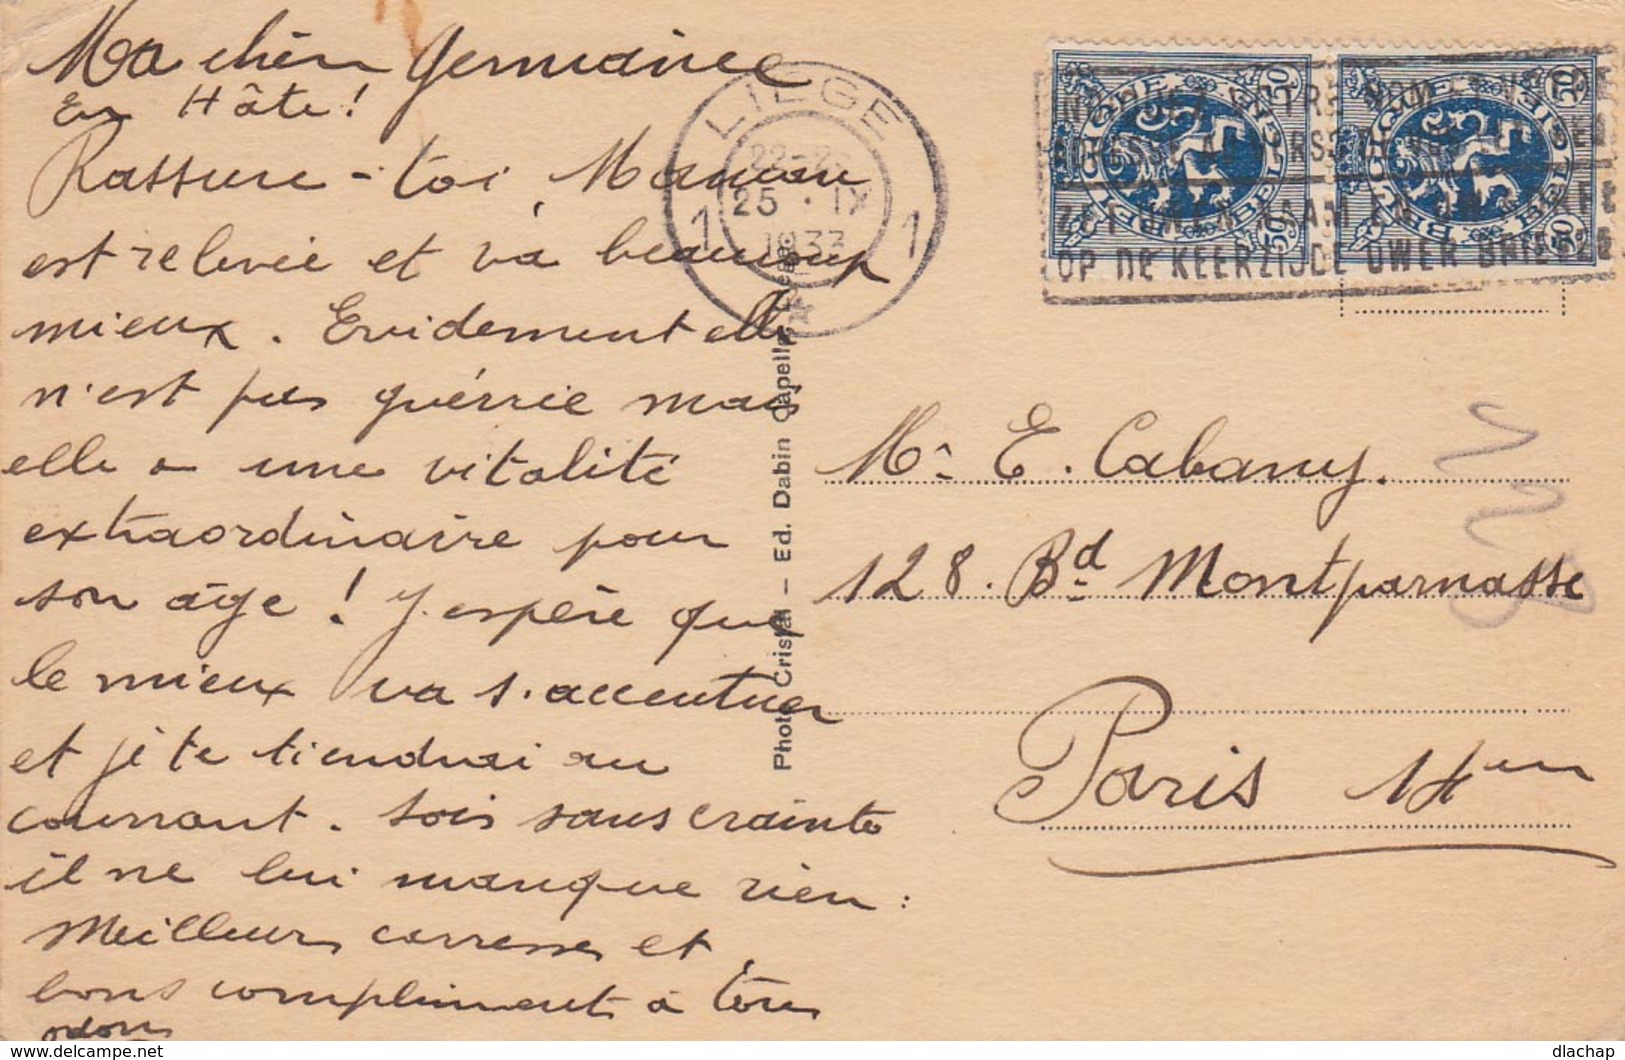 Ma chère Germaine
En Hâte !
Rassure-toi, Maman
est relevée et va beaucoup
mieux. Evidement elle
n'est pas guérrie mais
elle a une vitalité
extraordinaire pour
son âge ! J'espère que
le mieux va s'accentuer
et je te tiendrai au
courrant. Sois sans crainte
il ne lui manque rien.
Meilleurs carresses et
bons compliment à tous
odon
LIEGE
22-23
25 · IX
1933
1 1
BELGIQUE BELGIË
50 50
BELGIQUE BELGIË
50 50
ZET UWEN NAAM EN
OP DE KEERZIJDE UWER BRIEVEN
Photo Cristal - Ed. Dabin Capelle, Liége.
Mr E. Cabany.
128. Bd Montparnasse
Paris 14em
dlachap
delcampe.net